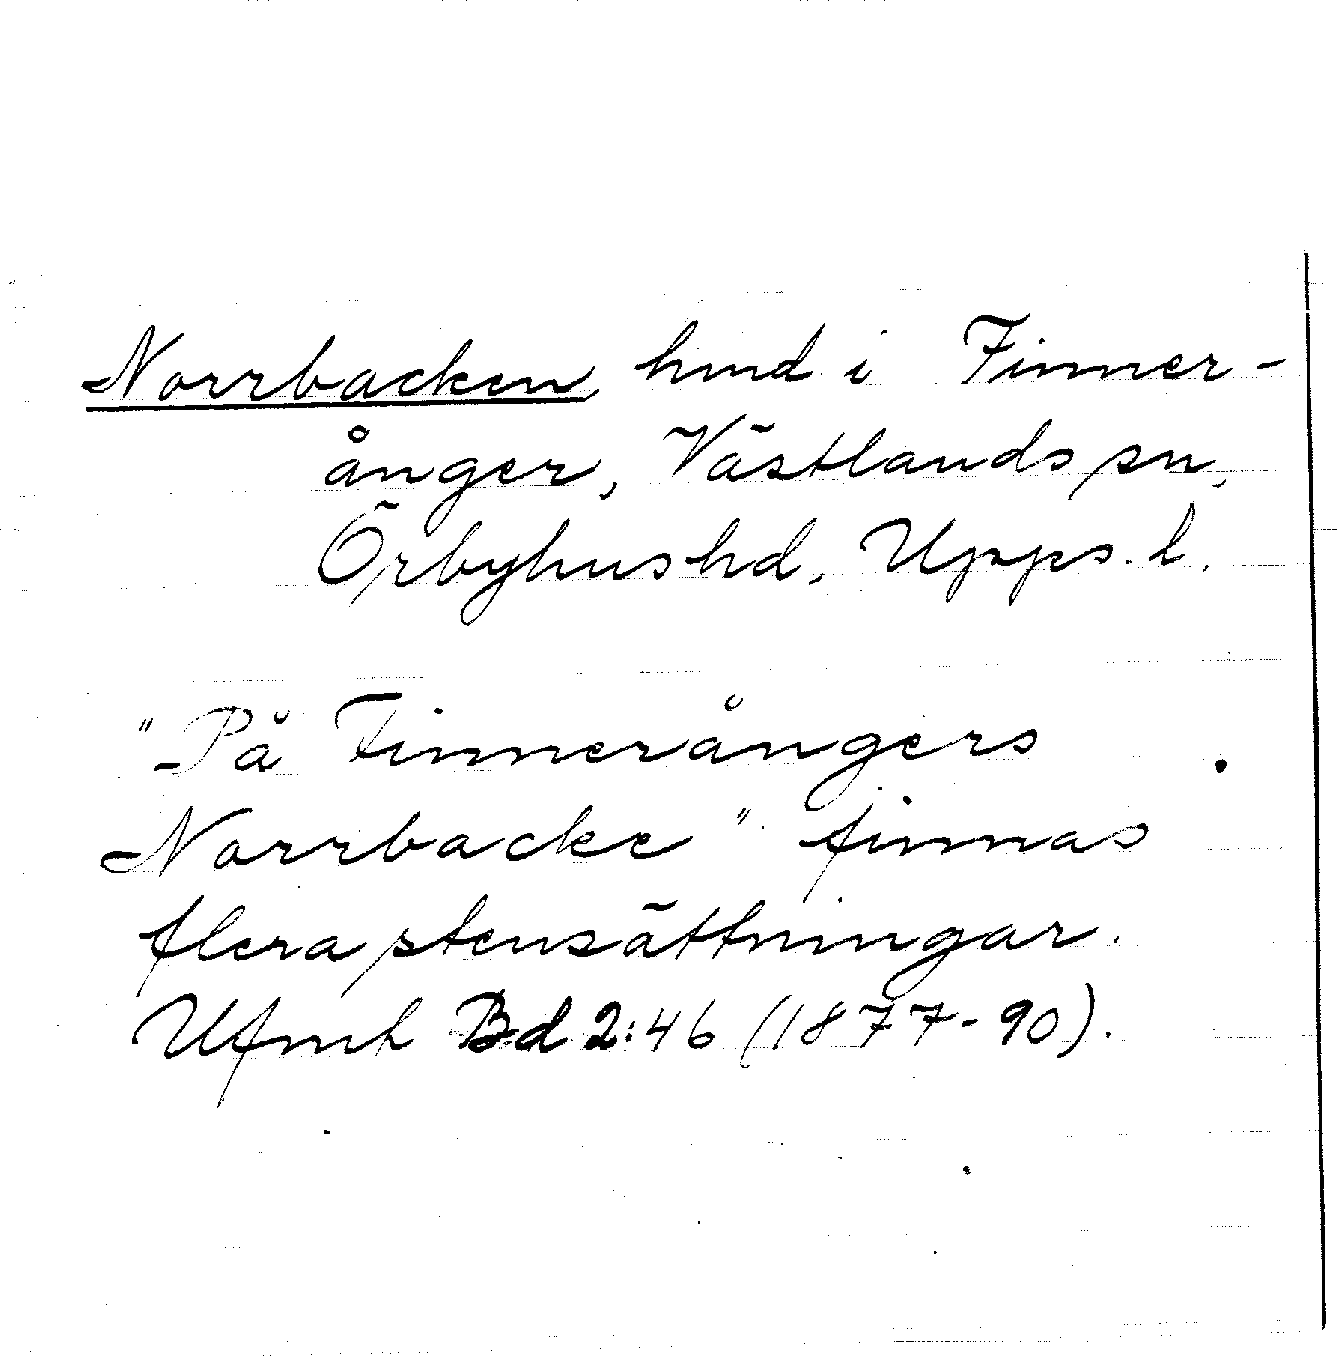 Norrbacken, hmd i Finner-
ånger, Västlands sn,
Örbyhus hd, Upps. l.
"På Finnerångers
Norrbacke" finnas
flera stensättningar.
Ufmh Bd 2:46 (1877-90).